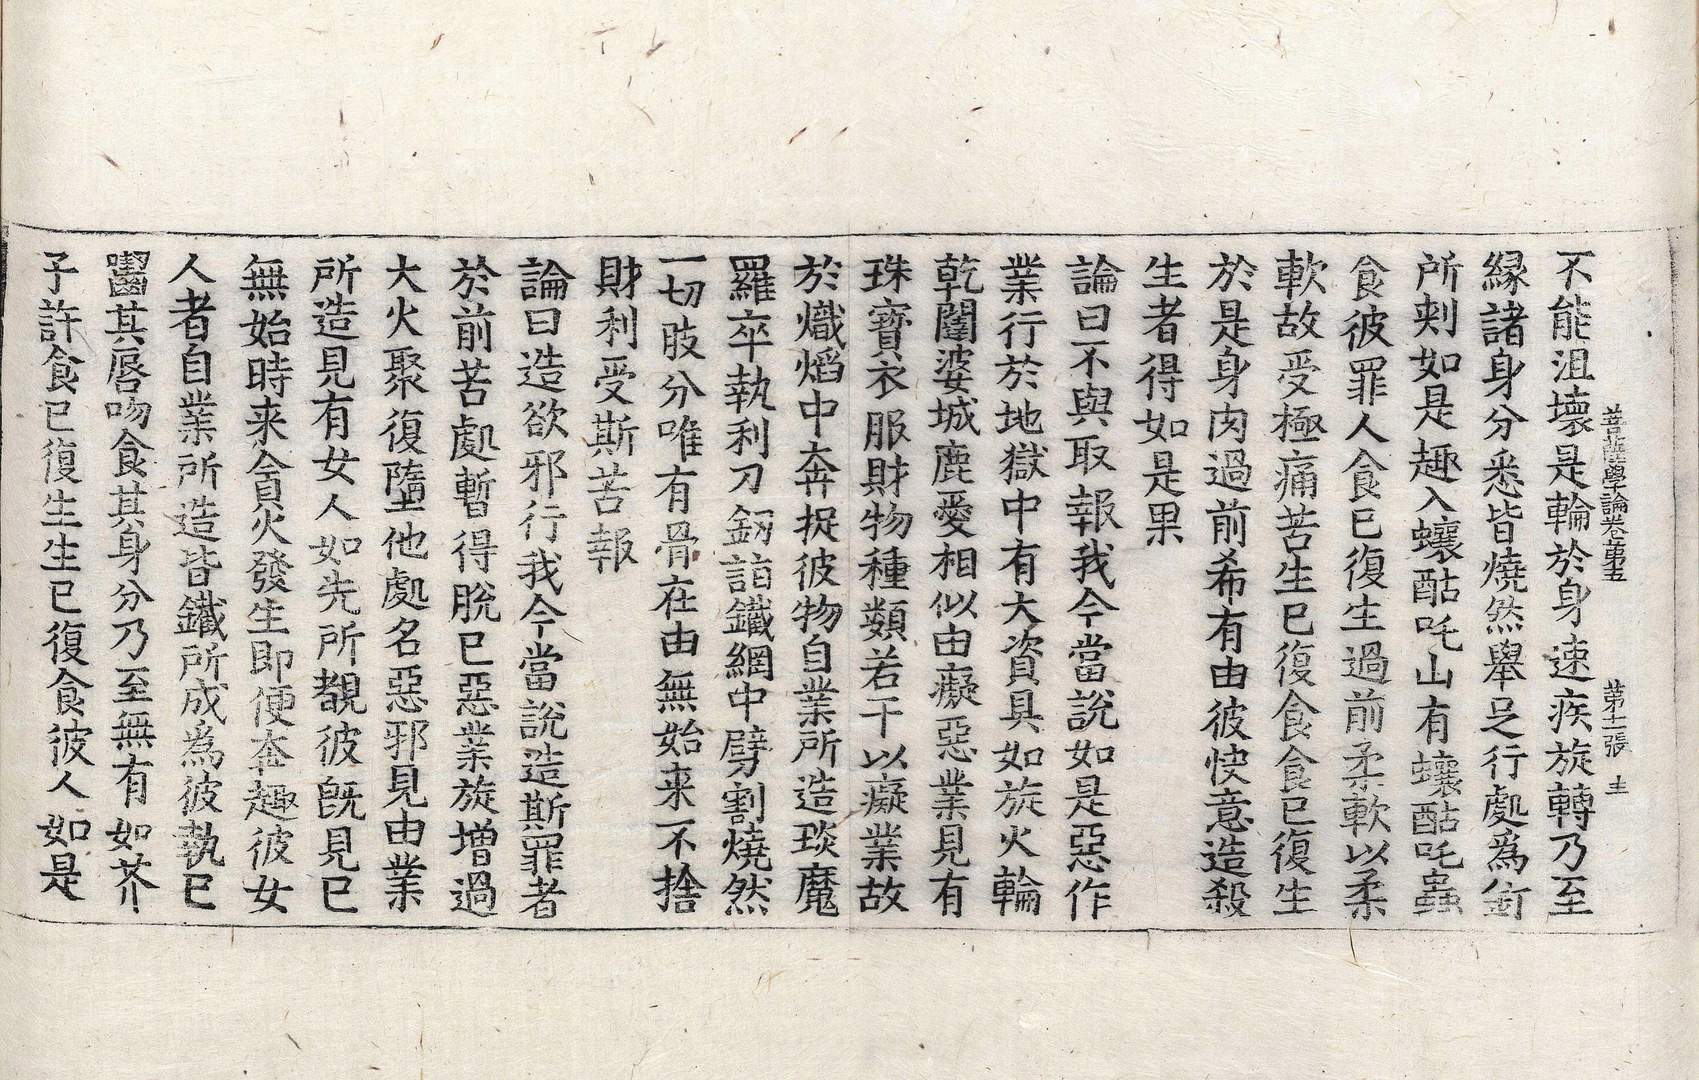 菩薩學論卷第五 第十二張 主
不能沮壞是輪於身速疾旋轉乃至
緣諸身分悉皆燒然舉足行處為
所刾如是趣入蠰酤吒山有蠰酤吒蟲
食彼罪人食已復生過前柔軟以柔
軟故受極痛苦生已復食食已復生
於是身肉過前希有由彼快意造殺
生者得如是果
論曰不與取報我今當說如是惡作
業行於地獄中有大資具如旋火輪
乾闥婆城鹿愛相似由癡惡業見有
珠寶衣服財物種類若干以癡業故
於熾焰中奔捉彼物自業所造琰魔
羅卒執利刀劒詣鐵網中劈割燒然
一切肢分唯有骨在由無始来不捨
財利受斯苦報
論曰造欲邪行我今當說造斯罪者
於前苦處暫得脫已惡業旋增過
大火聚復墮他處名惡邪見由業
所造見有女人如先所覩彼旣見已
無始時来貪火發生即便奔趣彼女
人者自業所造皆鐵所成為彼執已
齧其唇吻食其身分乃至無有如芥
子許食已復生生已復食彼人如是